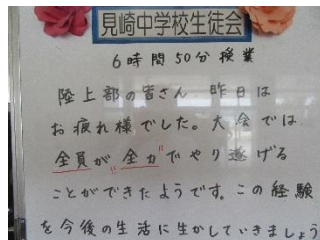 見崎中学校生徒会
6時間50分授業
陸上部の皆さん 昨日は
お疲れ様でした。大会では
全員が"全力"でやり遂げる
ことができたようです。この経験
を今後の生活に生かしていきましょう